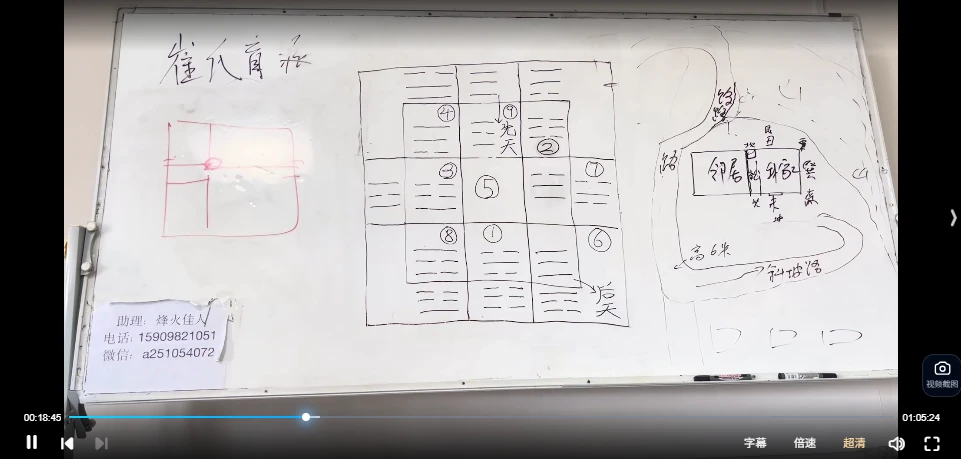 崔氏盲派
④
⑨
先天
②
③
⑤
⑦
⑧
①
⑥
后天
路
路
邻居
高6米
斜坡路
助理：烽火佳人
电话：15909821051
微信：a251054072
视频截图
00:18:45
01:05:24
字幕
倍速
超清